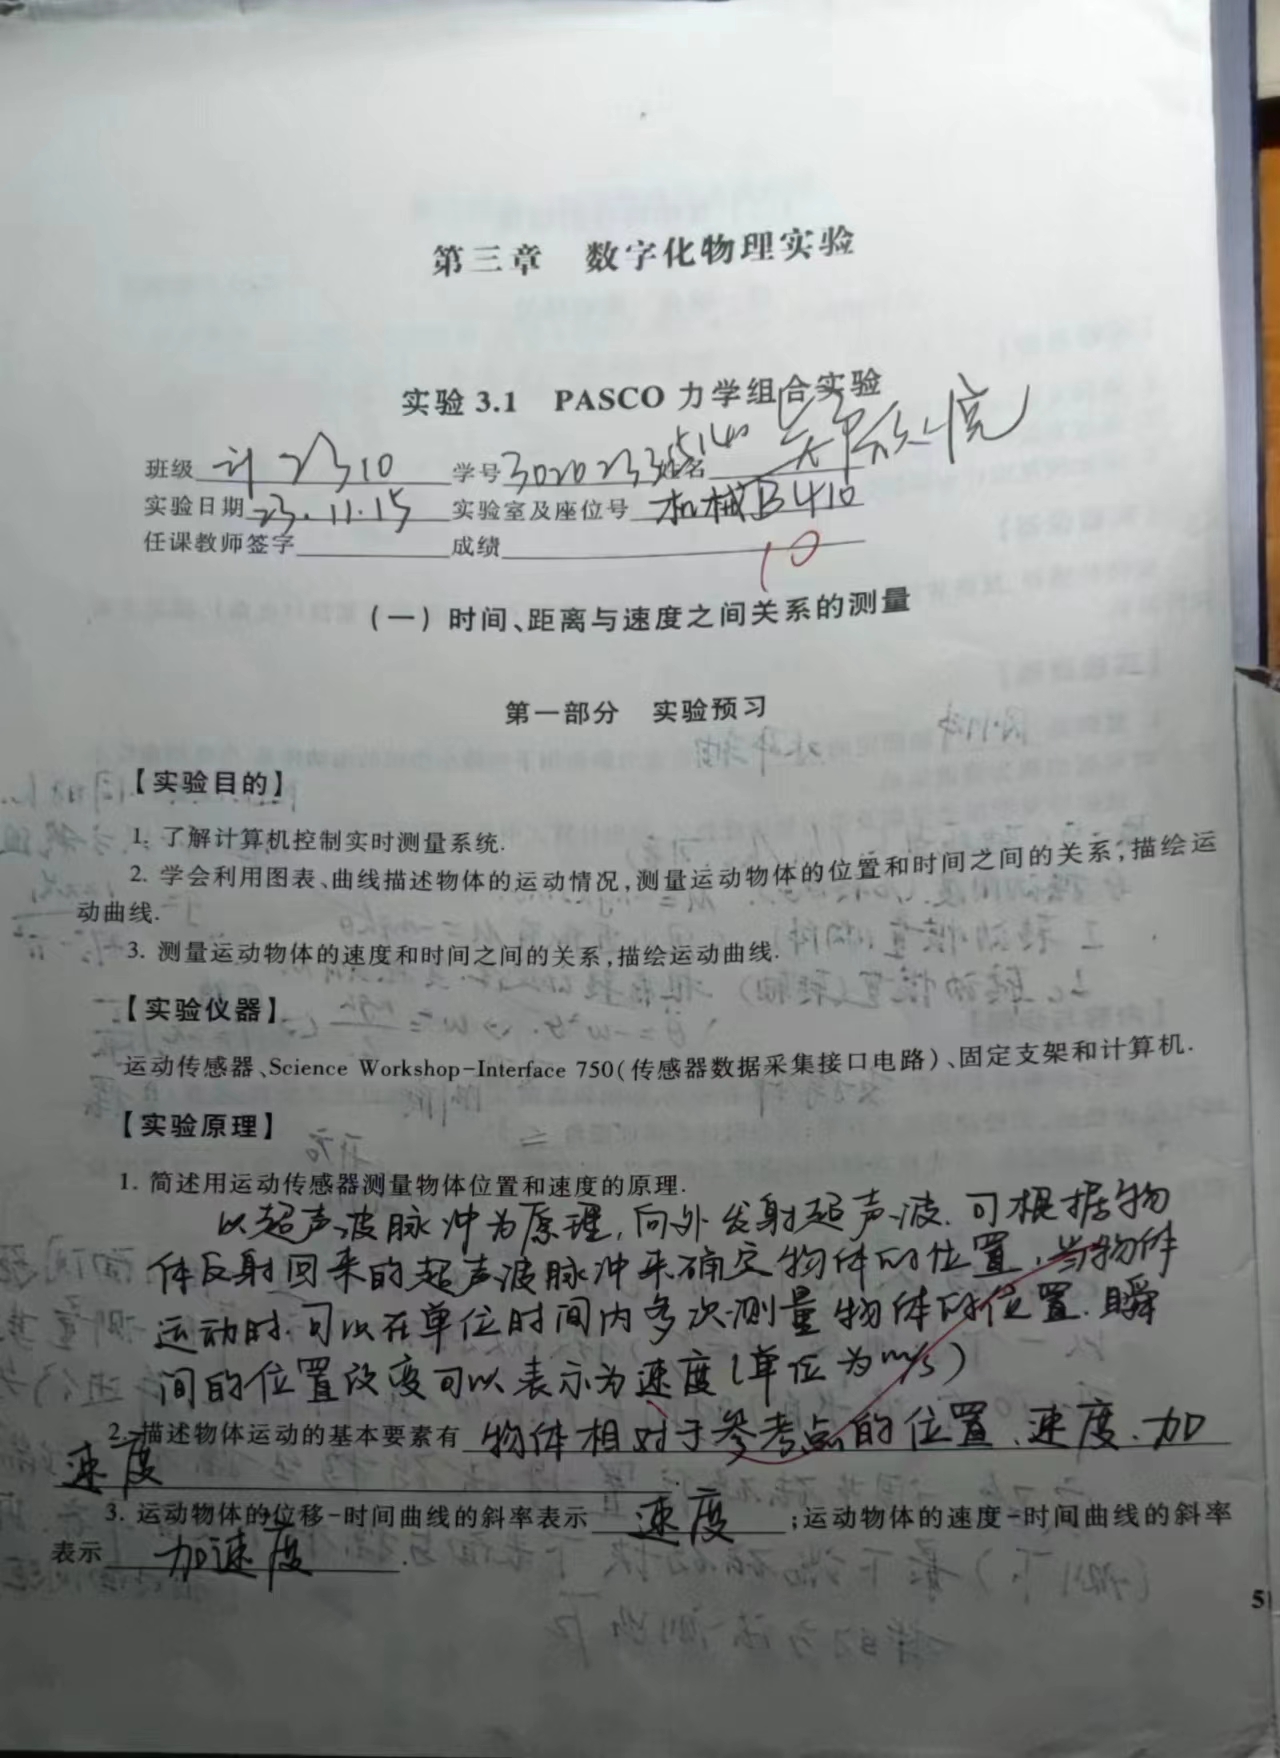 第三章 数字化物理实验
实验 3.1 PASCO 力学组合实验
班级 计2310 学号 3020233 5140 姓名 欣悦
实验日期 23.11.15 实验室及座位号 机械B410
任课教师签字 成绩 10
(一) 时间、距离与速度之间关系的测量
第一部分 实验预习
【实验目的】
1. 了解计算机控制实时测量系统.
2. 学会利用图表、曲线描述物体的运动情况,测量运动物体的位置和时间之间的关系,描绘运
动曲线.
3. 测量运动物体的速度和时间之间的关系,描绘运动曲线.
【实验仪器】
运动传感器、Science Workshop-Interface 750(传感器数据采集接口电路)、固定支架和计算机.
【实验原理】
1. 简述用运动传感器测量物体位置和速度的原理.
以超声波脉冲为原理,向外发射超声波.可根据物
体反射回来的超声波脉冲来确定物体的位置,当物体
运动时.可以在单位时间内多次测量物体的位置.瞬
间的位置改变可以表示为速度(单位为m/s)
2. 描述物体运动的基本要素有 物体相对于参考点的位置、速度、加
速度
3. 运动物体的位移-时间曲线的斜率表示 速度 ;运动物体的速度-时间曲线的斜率
表示 加速度 .
5